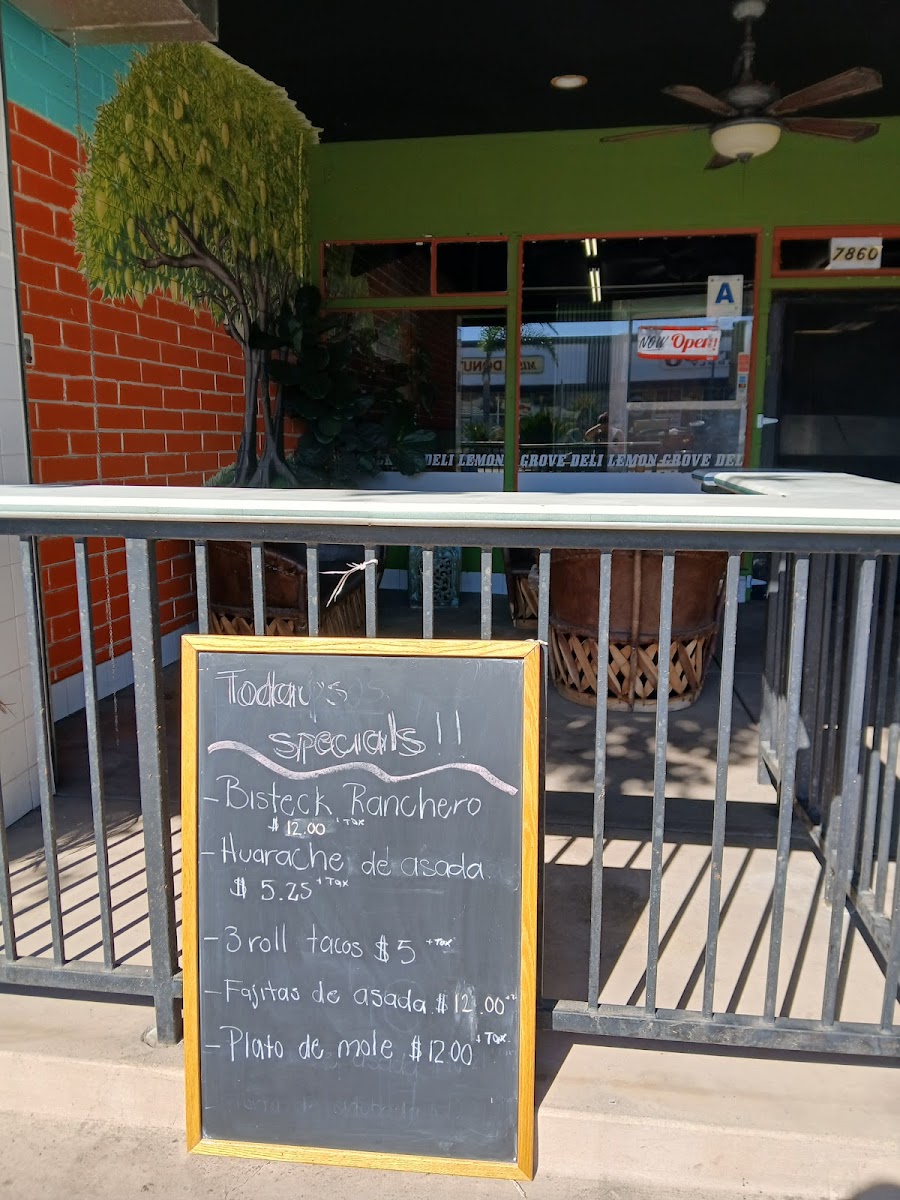 7860
A
NOW Open!
DONU
DELI LEMON GROVE DELI LEMON GROVE DEL
Today's
specials!!
- Bisteck Ranchero
$12.00 + Tax
- Huarache de asada
$5.25 + Tax
- 3 roll tacos $5 + Tax
- Fajitas de asada $12.00
- Plato de mole $12.00 + Tax